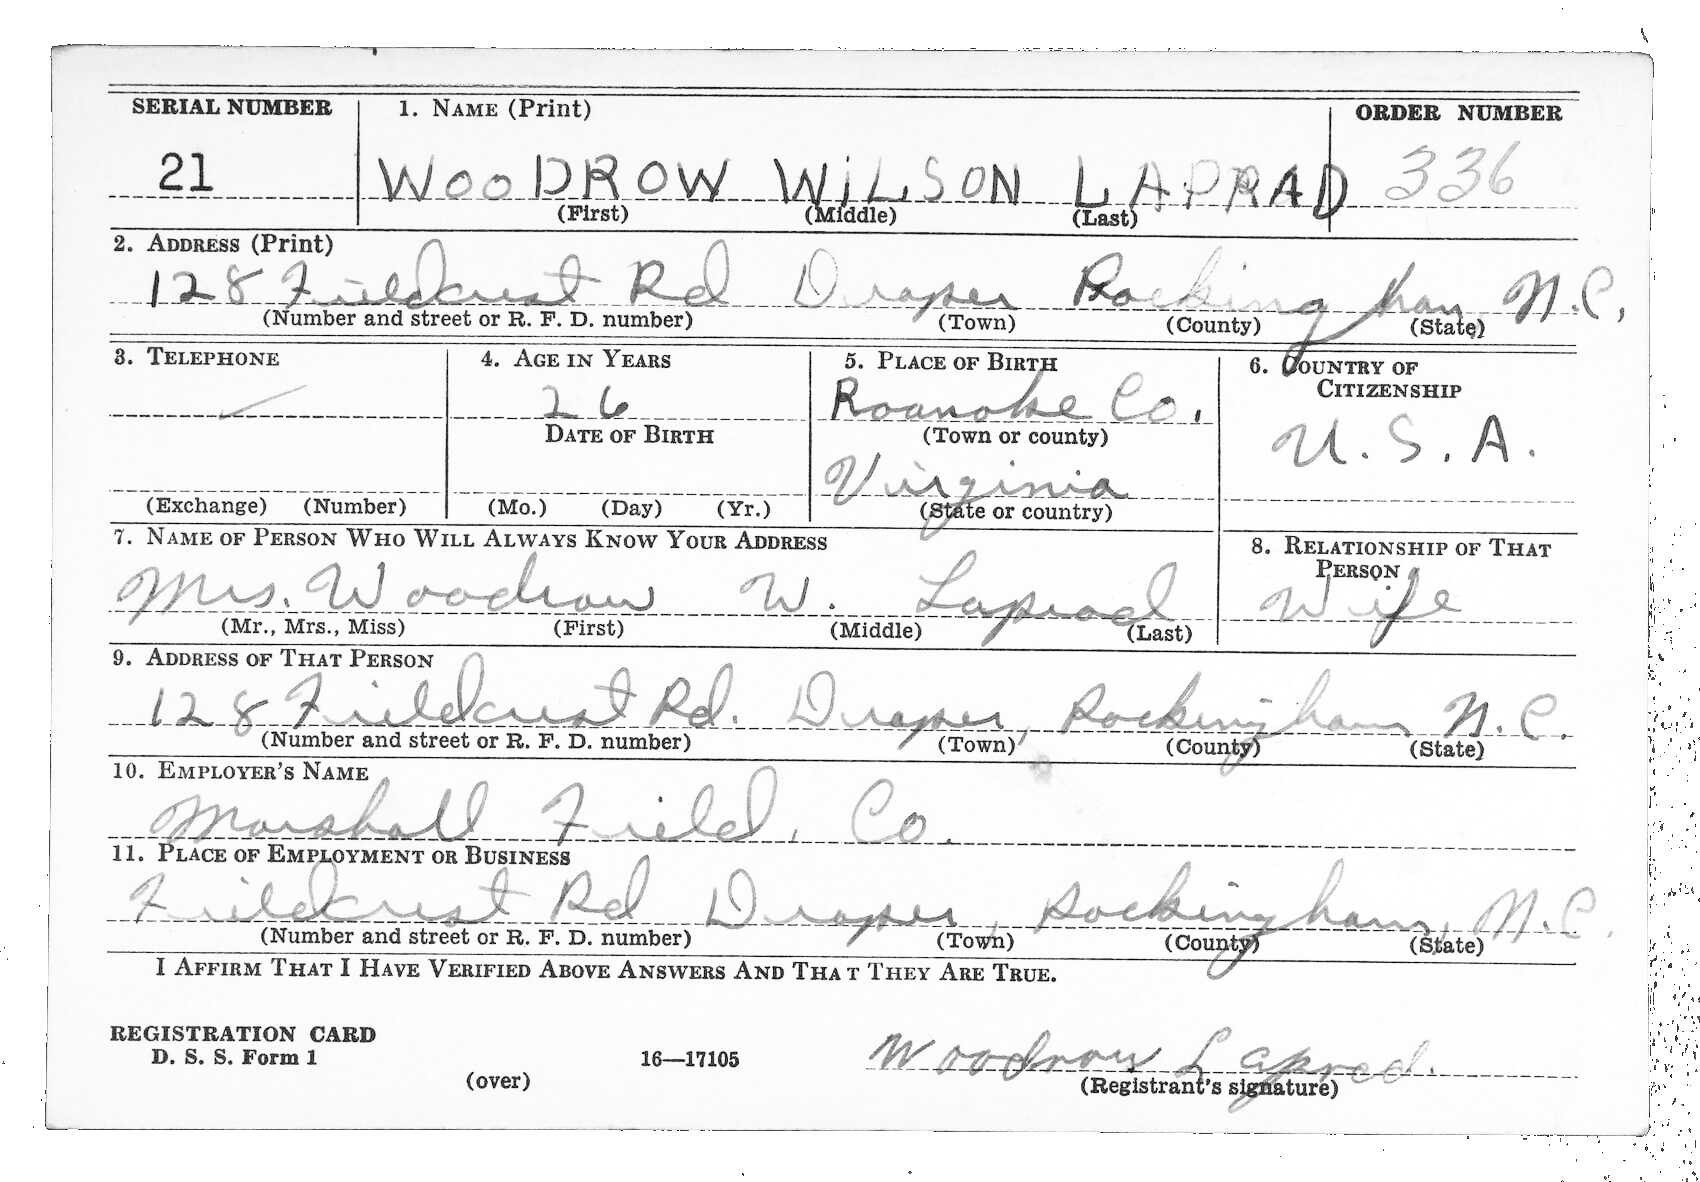 SERIAL NUMBER 1. NAME (Print) ORDER NUMBER
21 WOODROW WILSON LAPRAD 336
(First) (Middle) (Last)
2. ADDRESS (Print)
128 Fieldcrest Rd Draper Rockingham N.C.
(Number and street or R. F. D. number) (Town) (County) (State)
3. TELEPHONE 4. AGE IN YEARS 5. PLACE OF BIRTH 6. COUNTRY OF CITIZENSHIP
26 Roanoke Co. U.S.A.
DATE OF BIRTH (Town or county)
Virginia
(Exchange) (Number) (Mo.) (Day) (Yr.) (State or country)
7. NAME OF PERSON WHO WILL ALWAYS KNOW YOUR ADDRESS 8. RELATIONSHIP OF THAT PERSON
Mrs. Woodrow W. Laprad Wife
(Mr., Mrs., Miss) (First) (Middle) (Last)
9. ADDRESS OF THAT PERSON
128 Fieldcrest Rd. Draper, Rockingham N.C.
(Number and street or R. F. D. number) (Town) (County) (State)
10. EMPLOYER'S NAME
Marshall Field, Co.
11. PLACE OF EMPLOYMENT OR BUSINESS
Fieldcrest Rd Draper, Rockingham, N.C.
(Number and street or R. F. D. number) (Town) (County) (State)
I AFFIRM THAT I HAVE VERIFIED ABOVE ANSWERS AND THAT THEY ARE TRUE.
REGISTRATION CARD
D. S. S. Form 1 16—17105 Woodrow Laprad.
(over) (Registrant's signature)